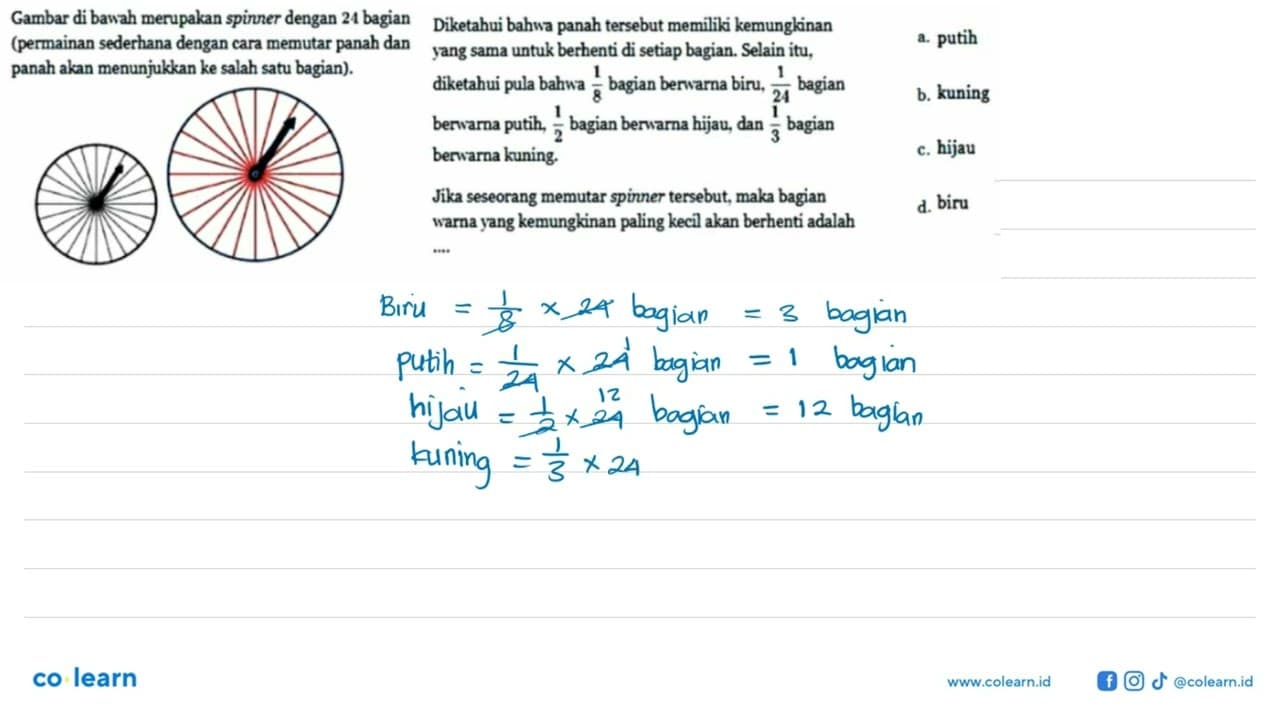 Gambar di bawah merupakan spinner dengan 24 bagian
(permainan sederhana dengan cara memutar panah dan
panah akan menunjukkan ke salah satu bagian).
Diketahui bahwa panah tersebut memiliki kemungkinan
yang sama untuk berhenti di setiap bagian. Selain itu,
diketahui pula bahwa 1/8 bagian berwarna biru, 1/24 bagian
berwarna putih, 1/2 bagian berwarna hijau, dan 1/3 bagian
berwarna kuning.
Jika seseorang memutar spinner tersebut, maka bagian
warna yang kemungkinan paling kecil akan berhenti adalah
....
a. putih
b. kuning
c. hijau
d. biru
Biru = 1/8 × 24 bagian = 3 bagian
putih = 1/24 × 24 1 bagian = 1 bagian
hijau = 1/2 × 24 12 bagian = 12 bagian
kuning = 1/3 × 24
co learn
www.colearn.id
@colearn.id